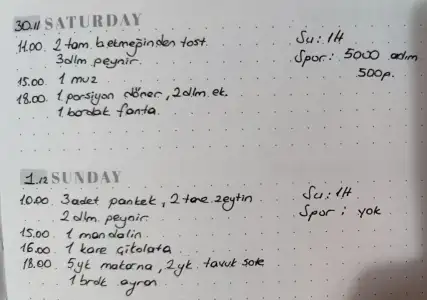 30.11 SATURDAY
11.00. 2 tam. b.ekmeğinden tost.
3dlm peynir.
Su: 1lt
Spor: 5000 adım
500p.
15.00. 1 muz
18.00. 1.porsiyon döner, 2dlm ek.
1 bardak fanta.
1.12 SUNDAY
10.00. 3adet pankek, 2 tane zeytin
2 dlm peynir.
Su: 1lt
Spor: yok
15.00. 1 mandalin.
16.00 1 kare çikolata
18.00. 5yk makarna, 2yk. tavuk sote
1 brdk ayran.